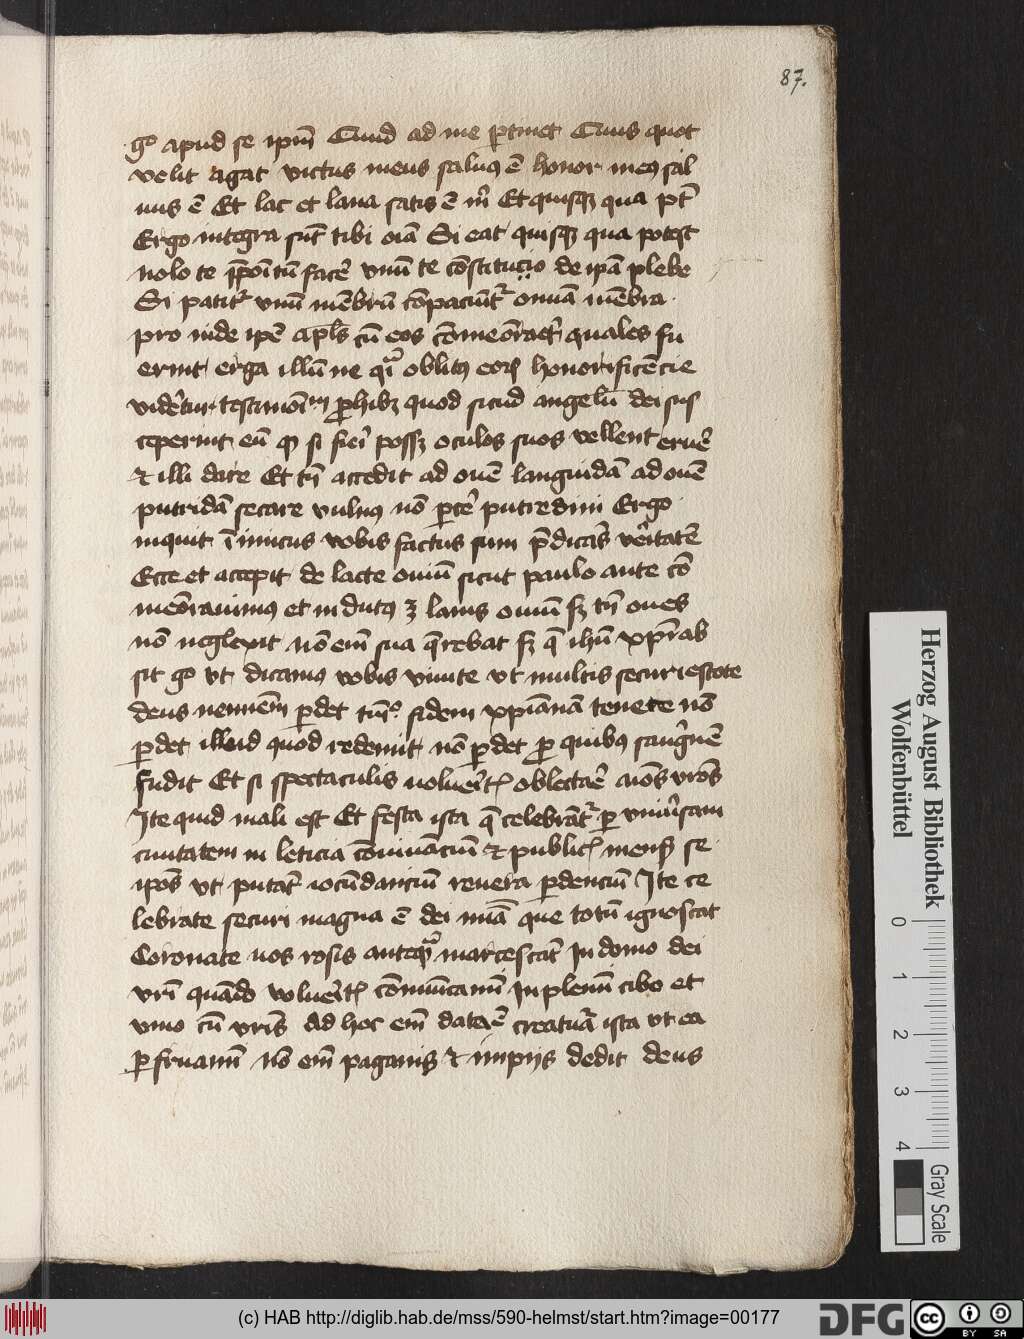 87.
go apud se ipm̄ Quid ad me ꝑtinet Quis quot
velit agat victus meus saluus ē honor meꝰ sal
uus ē Et lac et lana satis ē m̄ Et quisqꝫ qua pt̄
Ergo integra sūt tibi oīa Si eat quisqꝫ qua potest
nolo te p̄poītū facē vnū te cōstitucio de ipā plebe
Si patitr̄ vnū mēbrū cōpaciūtr̄ omīa mēbra
pro inde ipē apls̄ cū eos cōmeōraet̄ quales fu
erint erga illū ne qͣi oblitꝰ eorꝫ honorificēcie
vidēt̄ testimoī ꝑhibꝫ quod sicud angelū dei sus
ceperint eū ꝙ si fieī possꝫ oculos suos vellent eruē
et illi dare Et tn̄ accedit ad ouē languidā ad ouē
putridā secare vulnꝰ nō ꝑcē putredini Ergo
inquit īimicus vobis factus sum p̄dicās vēitatē
Ecce et accepit de lacte ouiū sicut paulo ante cō
meōrauimꝰ et indutꝰ ꝫ lanis ouiū sꝫ tn̄ oues
nō neglexit nō em̄ sua q̄rebat sꝫ q̄ ihū xp̄i Ab
sit go vt dicamꝰ vobis viuite vt multis securi estote
deus neminem̄ ꝑdet tm̄ fidem xp̄ianā tenete nō
ꝑdet illud quod redemit nō ꝑdet ꝓ quibꝰ sāguinē
fudit Et si spectaculis uoluēitꝭ oblectaē aīos vr̄os
Ite quid mali est Et festa ista q̄ celebrātr̄ ꝑ vniūsam
ciuitatem in leticia cōiuiāciū et publicꝭ mensꝭ se
ipōs vt putāt iocūdanciū reuera ꝑdenciū Ite ce
lebrate securi magna ē dei mīa que totū ignoscat
Coronate uos rosis anteqͣꝫ marcescāt In domo dei
vrī quādo voluēitꝭ cōiuiīcamī Inplemī cibo et
vino cū vrīs Ad hoc em̄ data ē creatuā ista vt ea
ꝑfruamī Nō em̄ paganis et impijs dedit deus
Herzog August Bibliothek
Wolfenbüttel
0 1 2 3 4
Gray Scale
(c) HAB http://diglib.hab.de/mss/590-helmst/start.htm?image=00177
DFG
cc BY SA